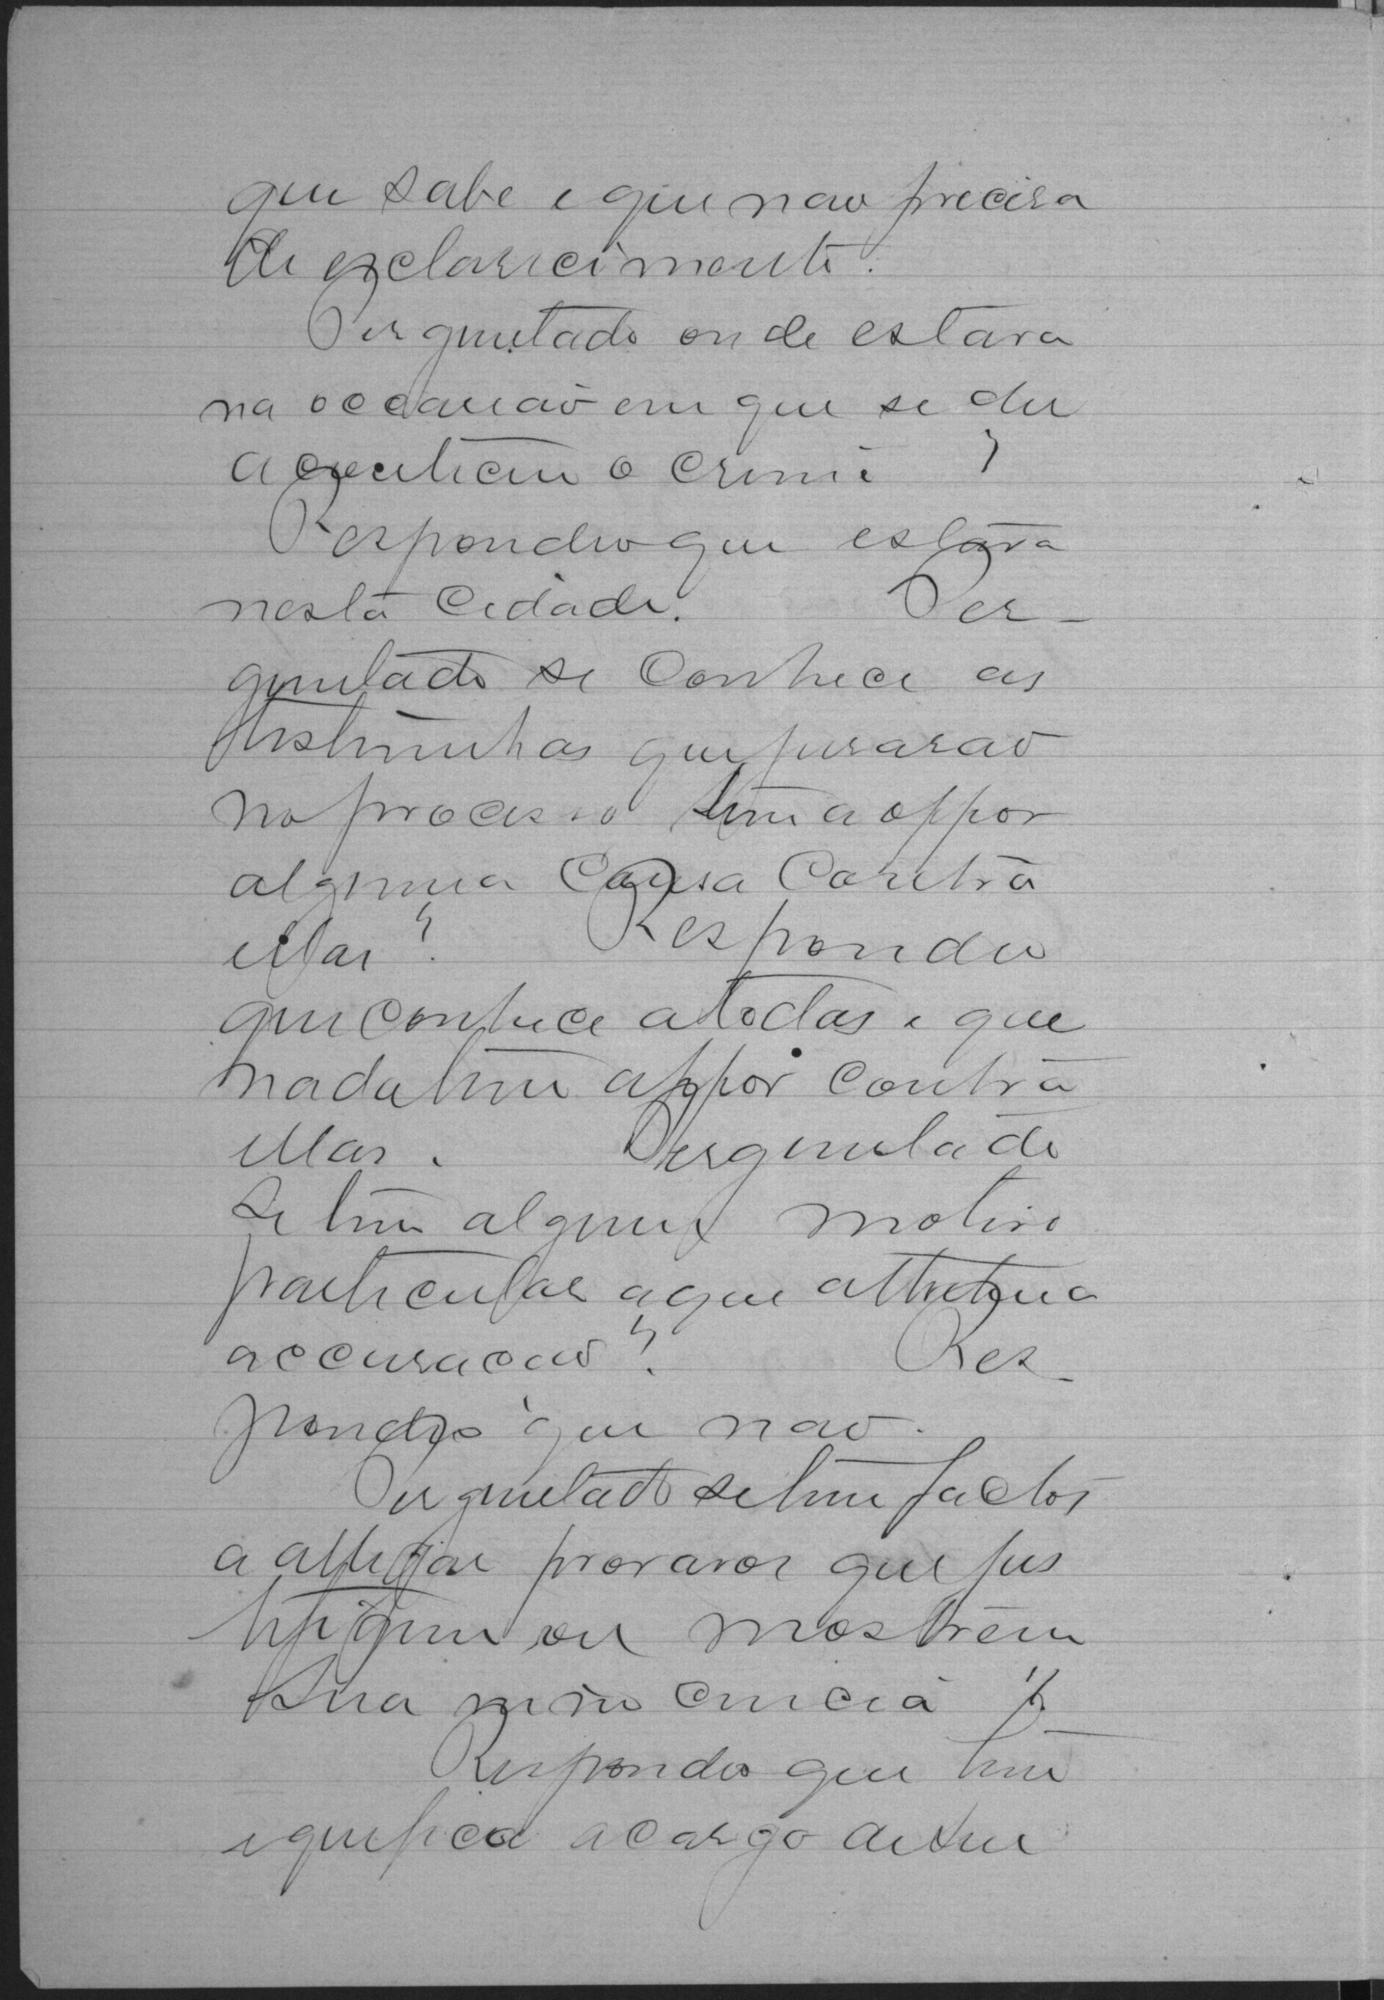 que sabe e que nao precisa
de esclarecimento.
Perguntado onde estava
na occasiaõ em que se deu
aconteceu o crime ?
Respondeo que estava
nesta Cidade. Per-
guntado se Conhece as
testimunhas que jurarao
no processo tem a oppor
alguma Cousa Contra
ellas ? Respondeo
que conhece a todas e que
nada tem a oppor contra
ellas. Perguntado
se tem algum motivo
particular a que attribua
accusacao ? Res-
pondeo que nao.
Perguntado se tem factos
a allegar provavos que jus
tifiquem ou mostrem
sua innocencia ?
Respondeo que tem
e que fica a cargo de seu